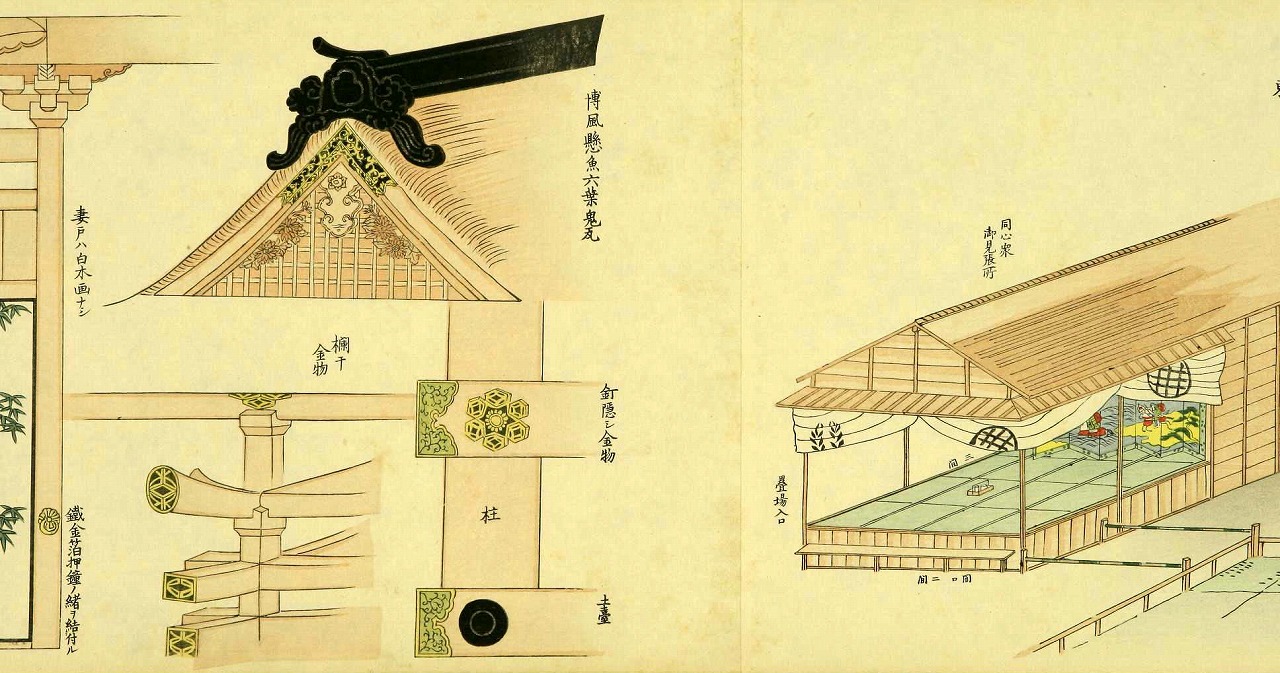 同心衆
御見張所
三間
畳場入口
間口二間
博風懸魚六葉鬼瓦
釘隠シ金物
土臺
柱
欄干
金物
妻戸ハ白木画ナシ
鐵金箔押鐘ノ緒ヲ結付ル